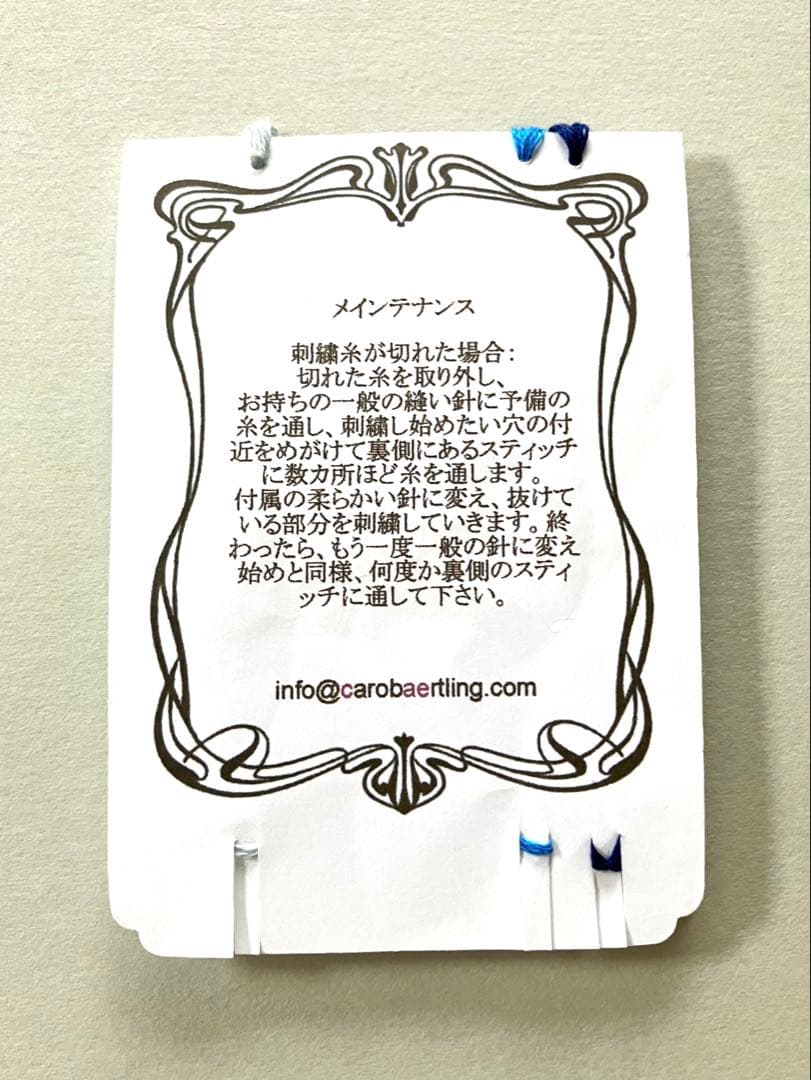 メインテナンス
刺繍糸が切れた場合：
切れた糸を取り外し、
お持ちの一般の縫い針に予備の
糸を通し、刺繍し始めたい穴の付
近をめがけて裏側にあるスティッチ
に数カ所ほど糸を通します。
付属の柔らかい針に変え、抜けて
いる部分を刺繍していきます。終
わったら、もう一度一般の針に変え
始めと同様、何度か裏側のスティ
ッチに通して下さい。
info@carobaertling.com